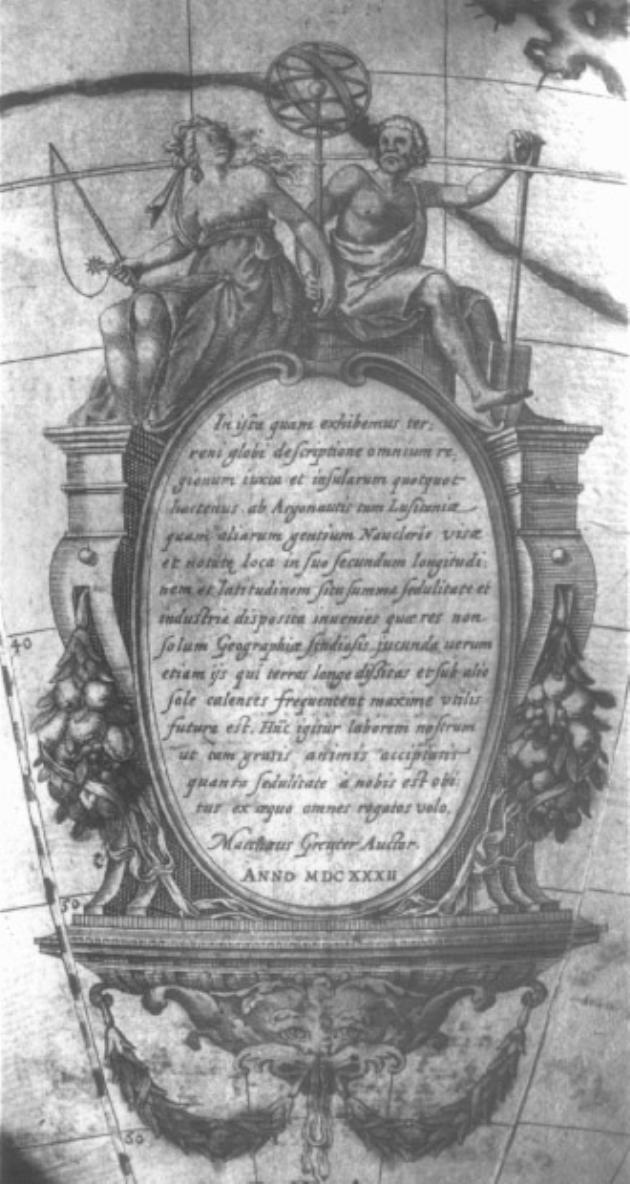 In ista quam exhibemus ter:
reni globi descriptione omnium re,
gionum iuxta et insularum quotquot
hactenus ab Argonautis tum Lusitaniæ
quam aliarum gentium Naucleris visæ
et notatæ loca in suo secundum longitudi:
nem et latitudinem situ summa sedulitate et
industria disposita inuenies quæ res non
solum Geographiæ studiosis jucunda uerum
etiam ijs qui terras longe dissitas et sub alio
sole calentes frequentent maxime vtilis
futura est. Hūc igitur laborem nostrum
ut tam gratis animis accipiatis
quanta sedulitate a nobis est obi:
tus ex æquo omnes rogatos volo.
Matthæus Greuter Auctor.
ANNO MDCXXXII
40
50
60